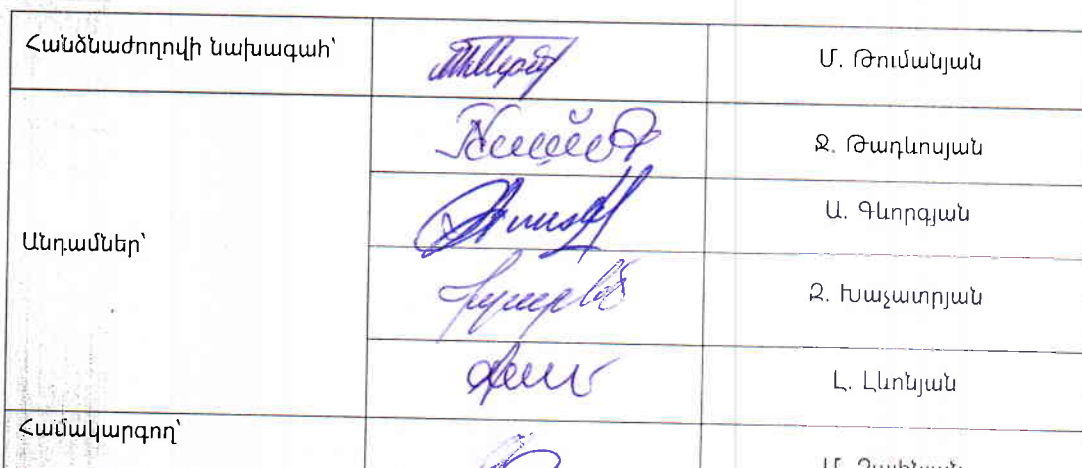 Հանձնաժողովի նախագահ՝
Մ. Թումանյան
Ջ. Թադևոսյան
Անդամներ՝
Ա. Գևորգյան
Զ. Խաչատրյան
Լ. Լևոնյան
Համակարգող՝